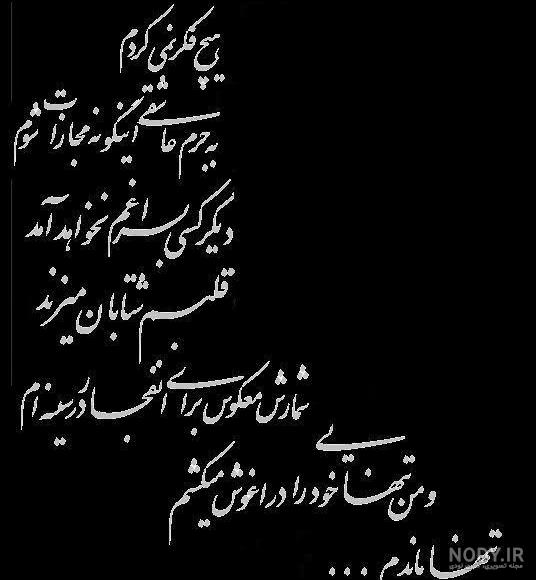 هیچ فکر نمی کردم
به جرم عاشقی اینگونه مجازات شوم
دیگر کسی بسراغم نخواهد آمد
قلبم شتابان میزند
شمارش معکوس برای انفجار در سینه ام
و من تنهایی خود را در اغوش میکشم
تنها ماندم . . .
NODY.IR